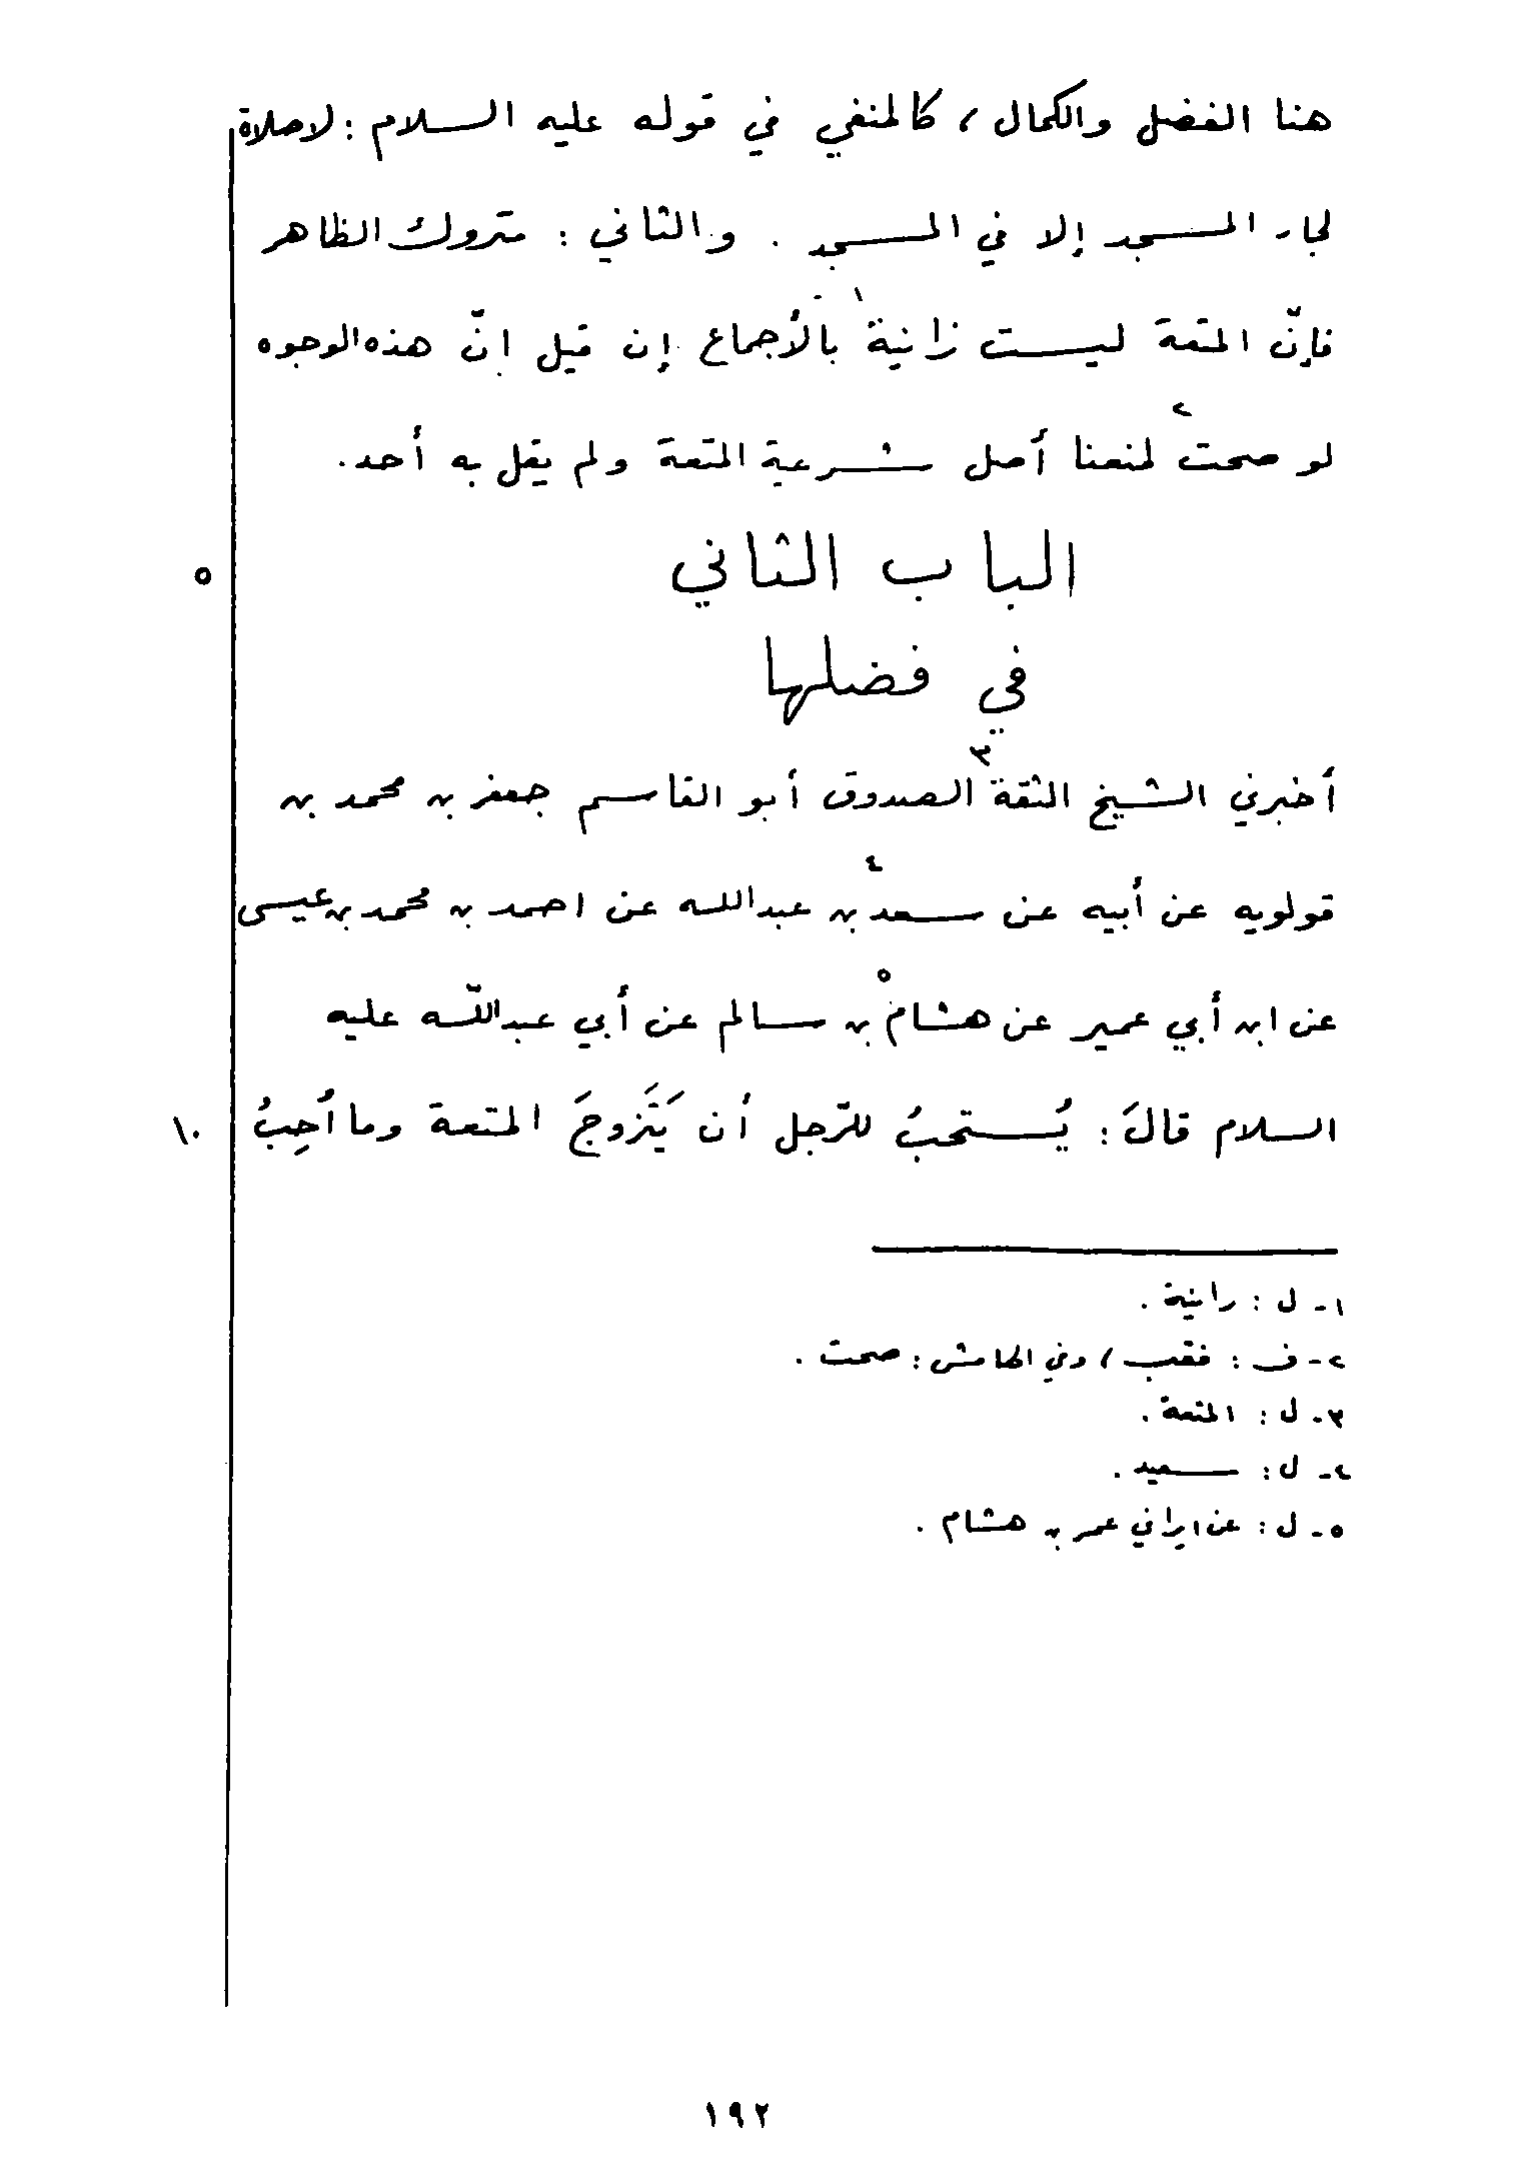 هنا الفضل والكمال ، كالمنفي في قوله عليه السلام : لاصلاة
لجار المسجد إلا في المسجد . والثاني : متروك الظاهر
فإنّ المتعة ليست زانية١ بالأجماع إن قيل انّ هذه الوجوه
لو صحت٢ لمنعنا أصل شرعية المتعة ولم يقل به أحد .
٥
الباب الثاني
في فضلها
أخبرني الشيخ الثقة٣ الصدوق أبو القاسم جعفر بن محمد بن
قولويه عن أبيه عن سعد٤ بن عبدالله عن احمد بن محمد بن عيسى
عن ابن أبي عمير عن هشام٥ بن سالم عن أبي عبداللّه عليه
السلام قالَ : يُستحبُ للرّجل أن يَتَزوجَ المتعة وما اُحِبُ
١٠
١ - ل : رانية .
٢ - ف : فقب ، وفي الهامش : صحت .
٣ - ل : المتعة .
٤ - ل : سعيد .
٥ - ل : عن ايراني عمر بن هشام .
١٩٢